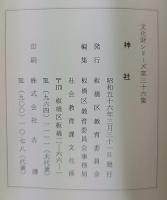 文化財シリーズ第三十六集
神社
昭和五十六年三月三十一日発行
発行 板橋区教育委員会
編集 板橋区教育委員会事務局
社会教育課文化係
板橋区板橋二ー六六ー一
℡(九六四)一一一一(大代表)
印刷 株式会社